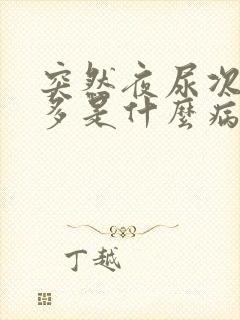 突然夜尿次
多是什麼病
丁越